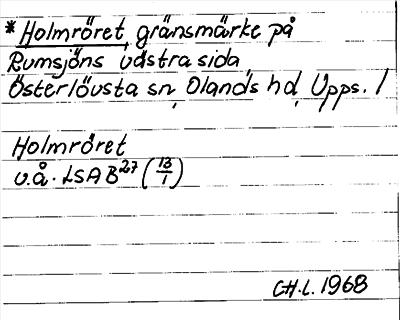 * Holmröret, gränsmärke på
Rumsjöns västra sida,
Österlövsta sn, Olands hd, Upps. l
Holmröret
u.å. LSA B27 (13/1)
CH.L. 1968